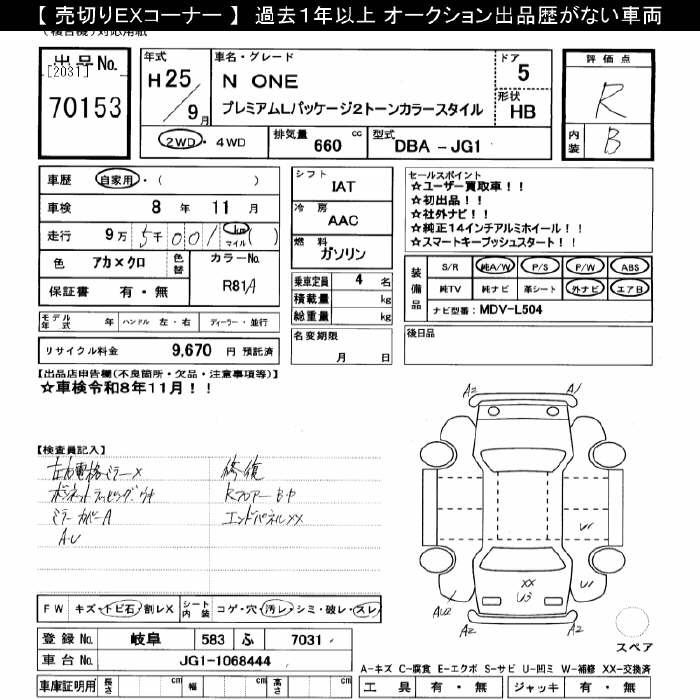 【 売切りEXコーナー 】 過去1年以上 オークション出品歴がない車両
出品No. [2031] 70153
年式 H25/9月
車名・グレード N ONE
プレミアムLパッケージ2トーンカラースタイル
ドア 5
形状 HB
評価点 R
内装 B
2WD・4WD 排気量 660 cc 型式 DBA - JG1
車歴 自家用・( )
車検 8 年 11 月
走行 9万 5千001 km マイル ( )
色 アカ×クロ 色替 カラーNo. R81A
保証書 有・無
モデル年式 年 ハンドル 左・右 ディーラー・並行
リサイクル料金 9,670 円 預託済
シフト IAT
冷房 AAC
燃料 ガソリン
乗車定員 4 名
積載量 kg
総重量 kg
名変期限 月 日
セールスポイント
☆ユーザー買取車!!
☆初出品!!
☆社外ナビ!!
☆純正14インチアルミホイール!!
☆スマートキープッシュスタート!!
装備品 S/R 純A/W P/S P/W ABS
純TV 純ナビ 革シート 外ナビ エアB
ナビ型番: MDV-L504
後日品
【出品店申告欄(不良箇所・欠品・注意事項等)】
☆車検令和8年11月!!
【検査員記入】
左右電格ミラー×
ボンネットラッピング ウキ
ミラーカバーA
A・U
修復
Rフロアー B P
エンドパネル XX
A2 A1
U1
U1
AU2
XX
U3
A2 A2
スペア
FW キズ・トビ石・割レX シート内装 コゲ・穴・汚レ・シミ・破レ・スレ
登録No. 岐阜 583 ふ 7031
車台No. JG1-1068444
車庫証明用 長さ cm 幅 cm 高さ cm
A-キズ C-腐食 E-エクボ S-サビ U-凹ミ W-補修 XX-交換済
工具 有・無 ジャッキ 有・無